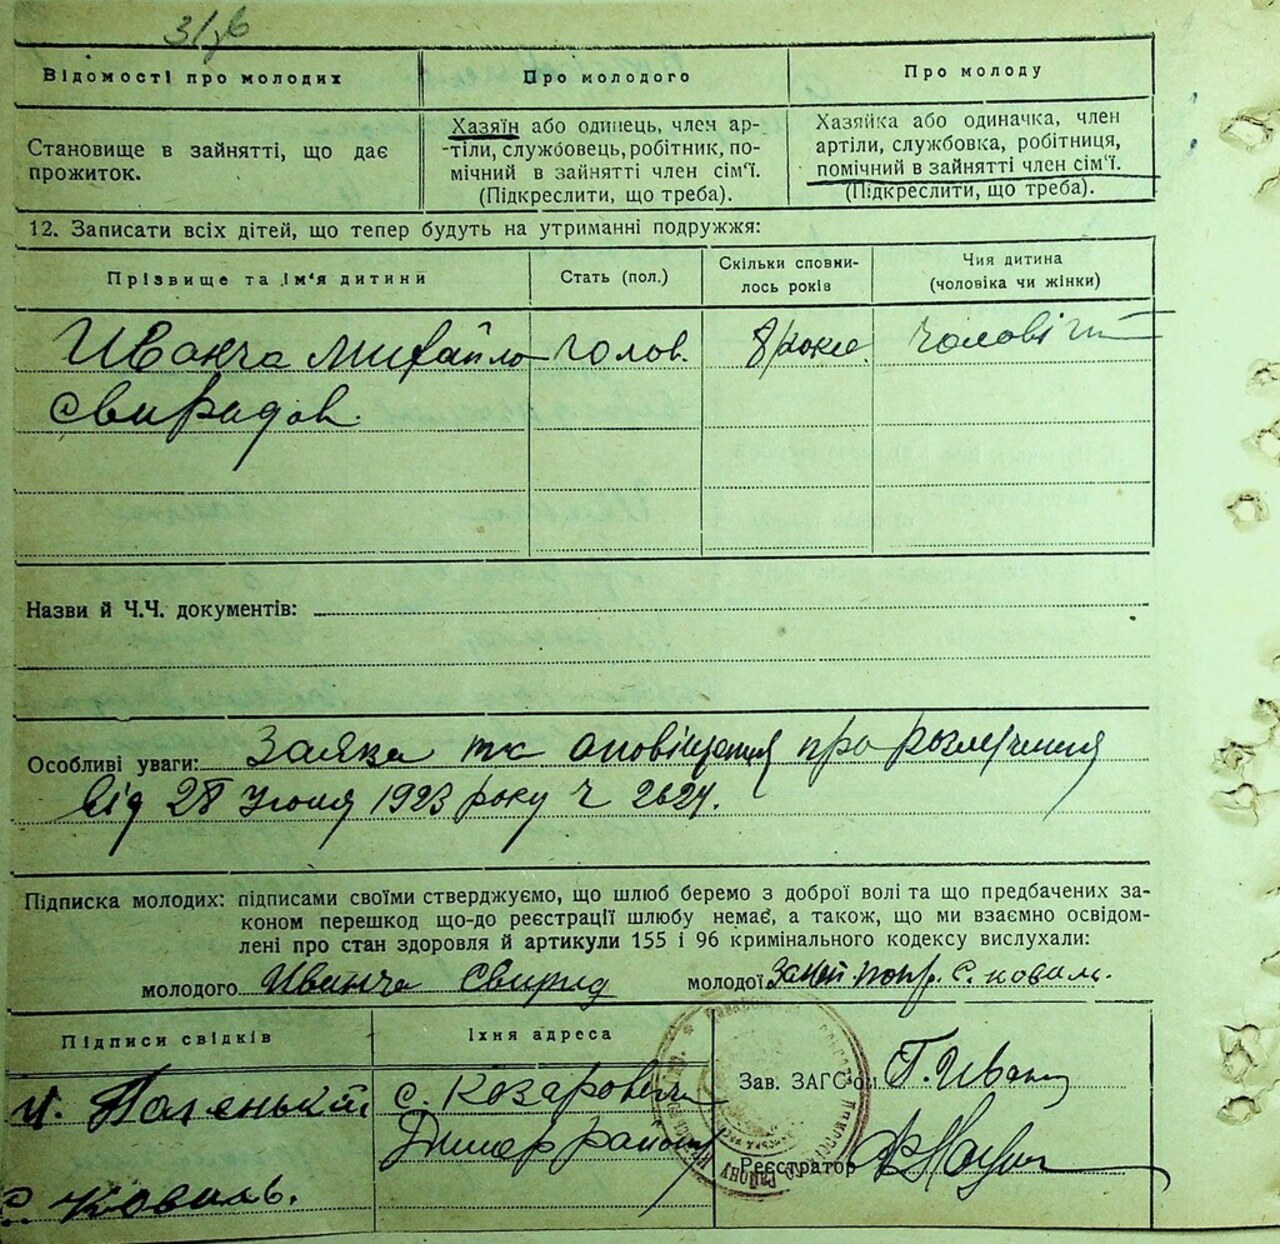 Відомості про молодих
Про молодого
Про молоду
Становище в зайнятті, що дає
прожиток.
Хазяїн або одинець, член ар-
-тіли, службовець, робітник, по-
мічний в зайнятті член сім'ї.
(Підкреслити, що треба).
Хазяйка або одиначка, член
артіли, службовка, робітниця,
помічний в зайнятті член сім'ї.
(Підкреслити, що треба).
12. Записати всіх дітей, що тепер будуть на утриманні подружжя:
Прізвище та ім'я дитини
Стать (пол.)
Скільки сповни-
лось років
Чия дитина
(чоловіка чи жінки)
Иванча Михайло
Свиридов.
чолов.
8 роки
Назви й Ч.Ч. документів:
Особливі уваги: Заявка та оповіщення про розлучення
від 28 Июля 1923 року Ч 2624.
Підписка молодих: підписами своїми стверджуємо, що шлюб беремо з доброї волі та що предбачених за-
коном перешкод що-до реєстрації шлюбу немає, а також, що ми взаємно освідом-
лені про стан здоровля й артикули 155 і 96 кримінального кодексу вислухали:
молодого Иванча Свирид
молодої за неї попр. С. Коваль.
Підписи свідків
Їхня адреса
с. Козаровичі
Димер району
С. Коваль.
Зав. ЗАГС'ом
Реєстратор